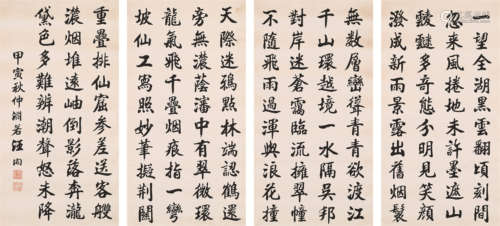 望全湖黑雲翻頃刻間
忽来風捲地未許墨遮山
靉靆多奇態分明見笑顔
潑成新雨景露出舊烟鬟
無數層巒聳青青欲渡江
千山環越境一水隔吳邦
對岸迷蒼靄臨流擁翠幢
不隨飛雨過渾與浪花撞
天際迷鴉點林端認鶴還
旁無濃蔭瀋中有翠微環
龍氣飛千疊烟痕指一彎
坡仙工寫照妙筆擬荊關
重疊排仙窟參差送客艭
濃烟堆遠岫倒影落奔瀧
黛色多難辨潮聲怒未降
甲寅秋仲淵若汪洵